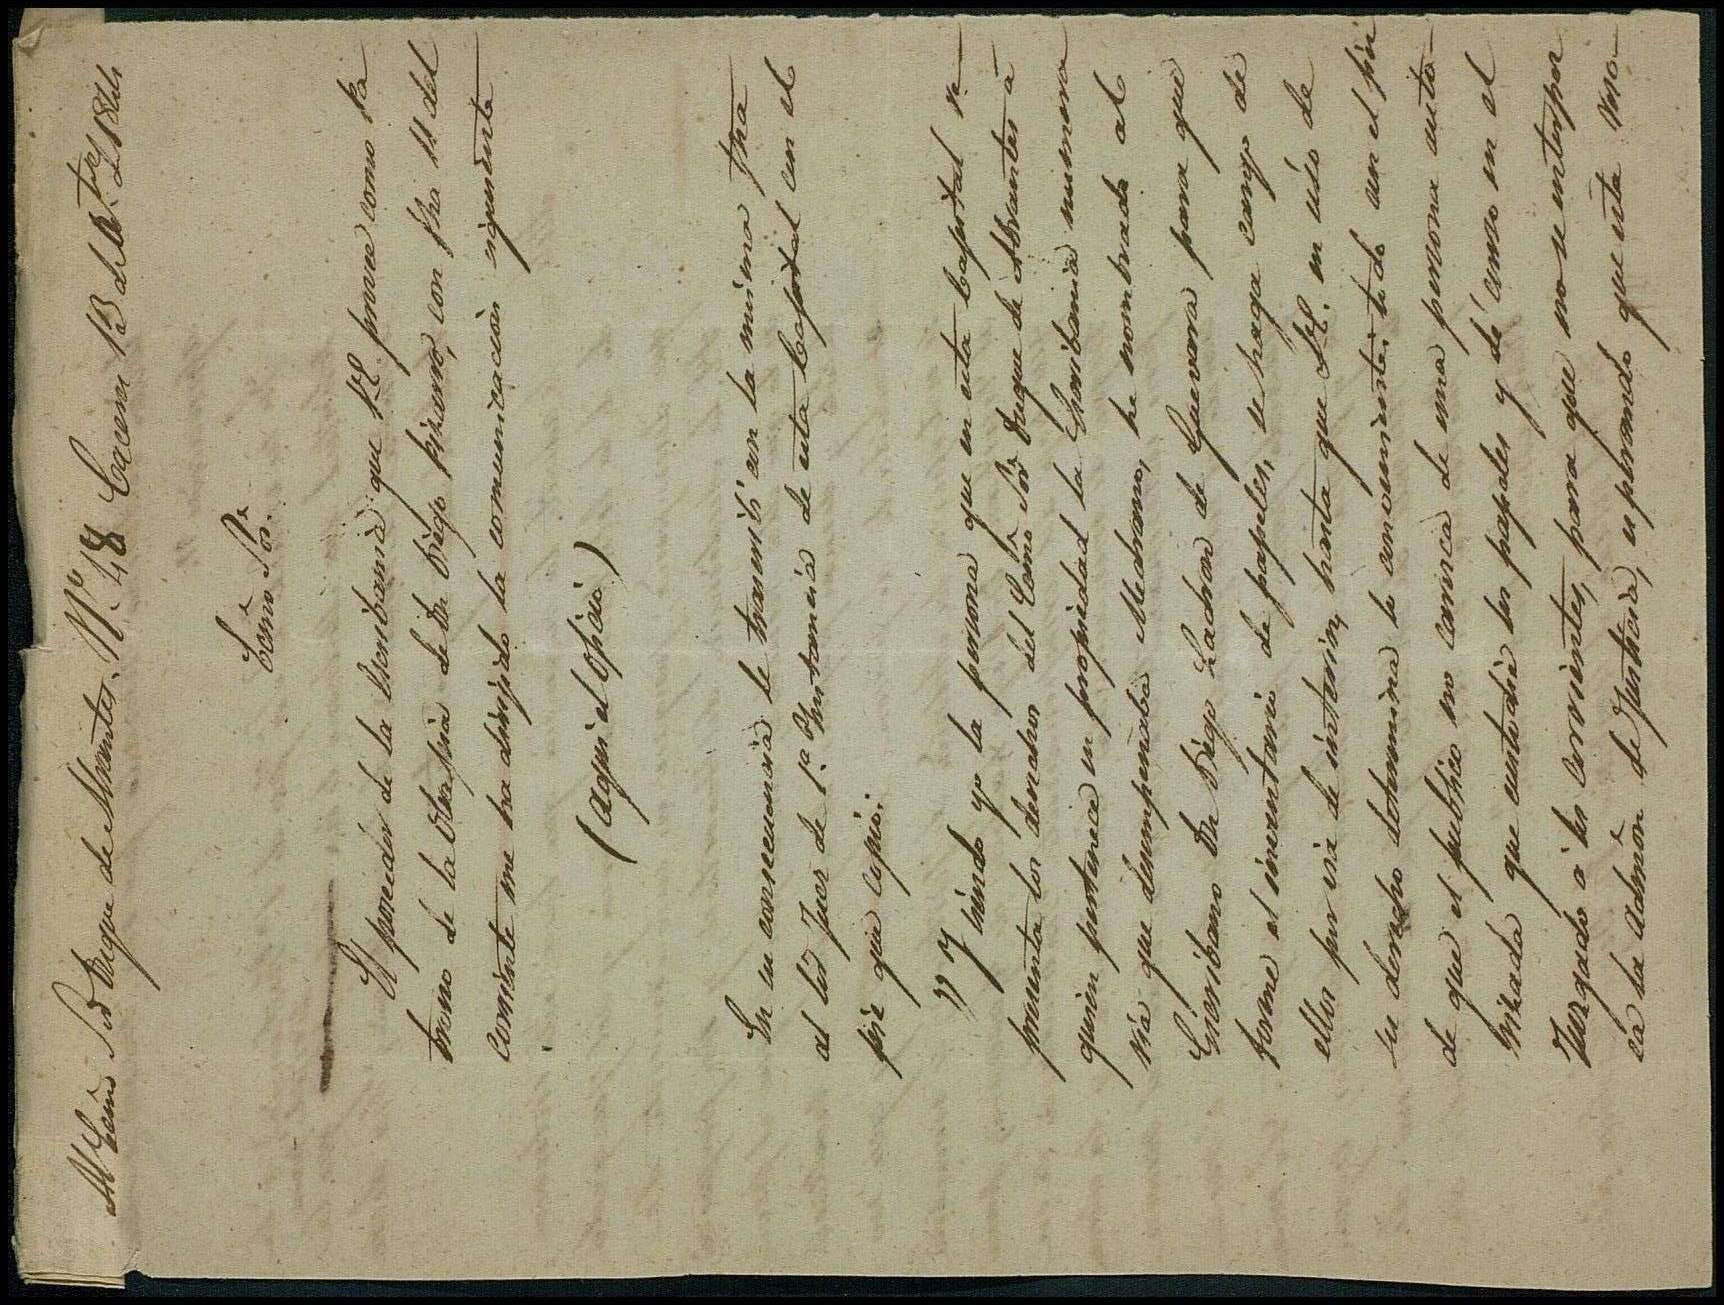 Al Ecsmo Sr Duque de Abrantes. Nº 48 Cáceres 13 de Dbre 1844
Ecsmo Sor.
El poseedor de la Escribania que V.E. posee como Pa
trono de la Obrapia de Dn Diego Pizarro, con fha 11 del
corriente me ha dirigido la comunicación siguiente
(aqui el oficio)
En su consecuencia le trasmití con la misma fha
al Sor Juez de 1.ª Instancia de esta Capital con el
pie que copio:
"Y siendo yo la persona que en esta Capital re
presenta los derechos del Ecsmo Sor Duque de Abrantes á
quien pertenece en propiedad la Escribania numera
ria que desempeñaba Medrano, he nombrado al
Escribano Dn Diego Ladron de Guevara para que
forme el inventario de papeles, se haga cargo de
ellos por via de interin, hasta que S.E. en uso de
su derecho determina lo conveniente; todo con el fin
de que el publico no carezca de una persona auto
rizada que custodie los papeles y dé curso en el
Juzgado á los corrientes, para que no se entorpez
ca la admon de Justicia, esperando que esta mo-